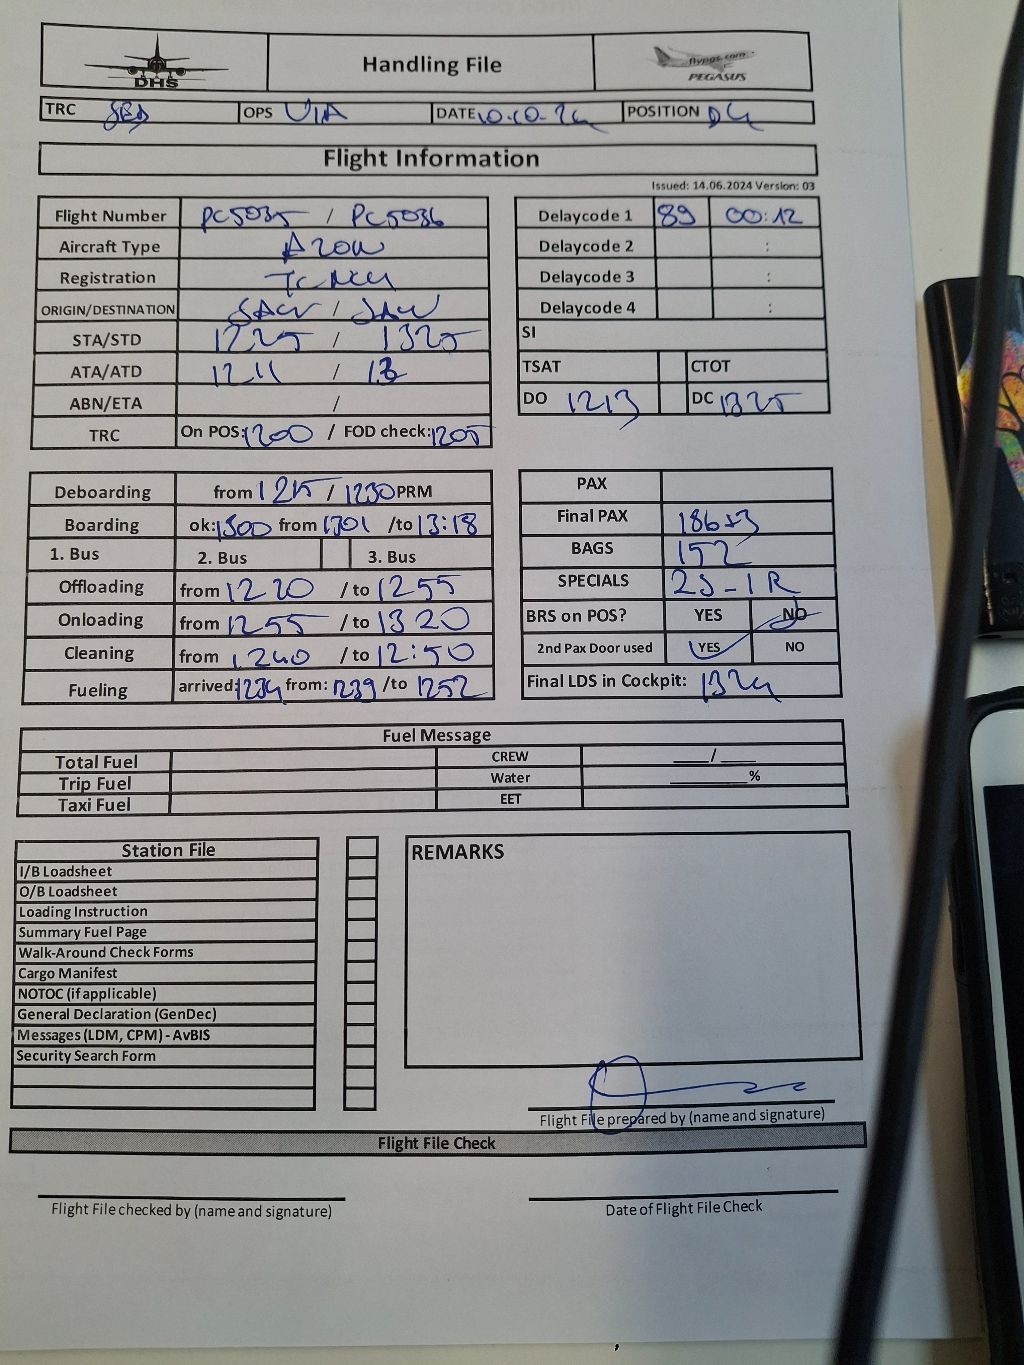 DHS
Handling File
flypgs.com
PEGASUS
TRC
OPS VIA
DATE 10.10.24
POSITION D4
Flight Information
Issued: 14.06.2024 Version: 03
Flight Number PC5035 / PC5036
Aircraft Type
Registration
ORIGIN/DESTINATION SAW / SAW
STA/STD 1225 / 1325
ATA/ATD 1211 / 13
ABN/ETA /
TRC On POS: 1200 / FOD check: 1205
Delaycode 1 89 00:12
Delaycode 2 :
Delaycode 3 :
Delaycode 4 :
SI
TSAT CTOT
DO 1213 DC 1325
Deboarding from 1215 / 1230 PRM
Boarding ok: 1300 from 1301 /to 13:18
1. Bus 2. Bus 3. Bus
Offloading from 1220 / to 1255
Onloading from 1255 / to 1320
Cleaning from 1240 / to 12:50
Fueling arrived: 1234 from: 1239 /to 1252
PAX
Final PAX 186+3
BAGS 152
SPECIALS 2S-1R
BRS on POS? YES NO
2nd Pax Door used YES NO
Final LDS in Cockpit: 1324
Fuel Message
Total Fuel CREW ____/____
Trip Fuel Water ________%
Taxi Fuel EET
Station File
I/B Loadsheet
O/B Loadsheet
Loading Instruction
Summary Fuel Page
Walk-Around Check Forms
Cargo Manifest
NOTOC (if applicable)
General Declaration (GenDec)
Messages (LDM, CPM) - AvBIS
Security Search Form
REMARKS
Flight File prepared by (name and signature)
Flight File Check
Flight File checked by (name and signature)
Date of Flight File Check